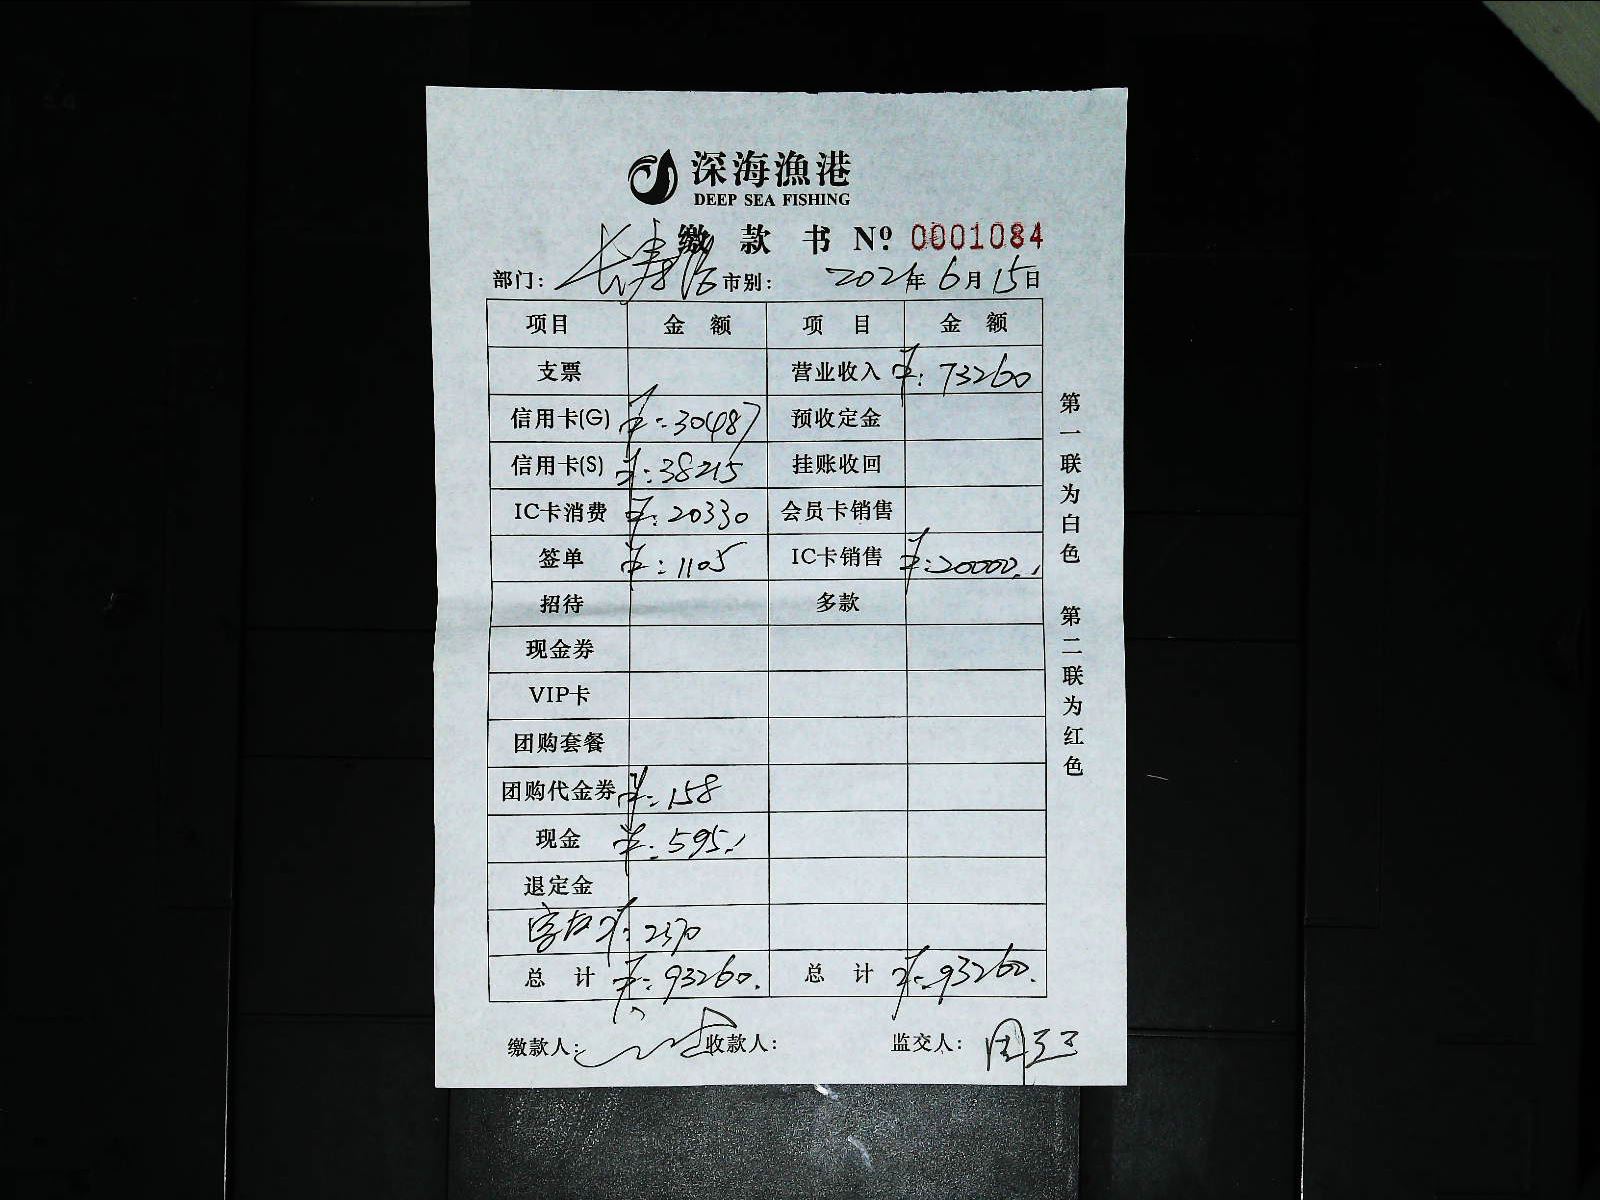 深海漁港
DEEP SEA FISHING
缴款书 Nº 0001084
部门: 长寿路 市别: 2021年6月15日
项目 金额 项目 金额
支票 营业收入 ¥:73260
信用卡(G) ¥:30487 预收定金
信用卡(S) ¥:38215 挂账收回
IC卡消费 ¥:20330 会员卡销售
签单 ¥:1105 IC卡销售 ¥:20000.
招待 多款
现金券
VIP卡
团购套餐
团购代金券 ¥:158
现金 ¥:595.
退定金
¥:2370
总计 ¥:93260. 总计 ¥:93260.
缴款人: 收款人: 监交人: 周
第一联为白色 第二联为红色